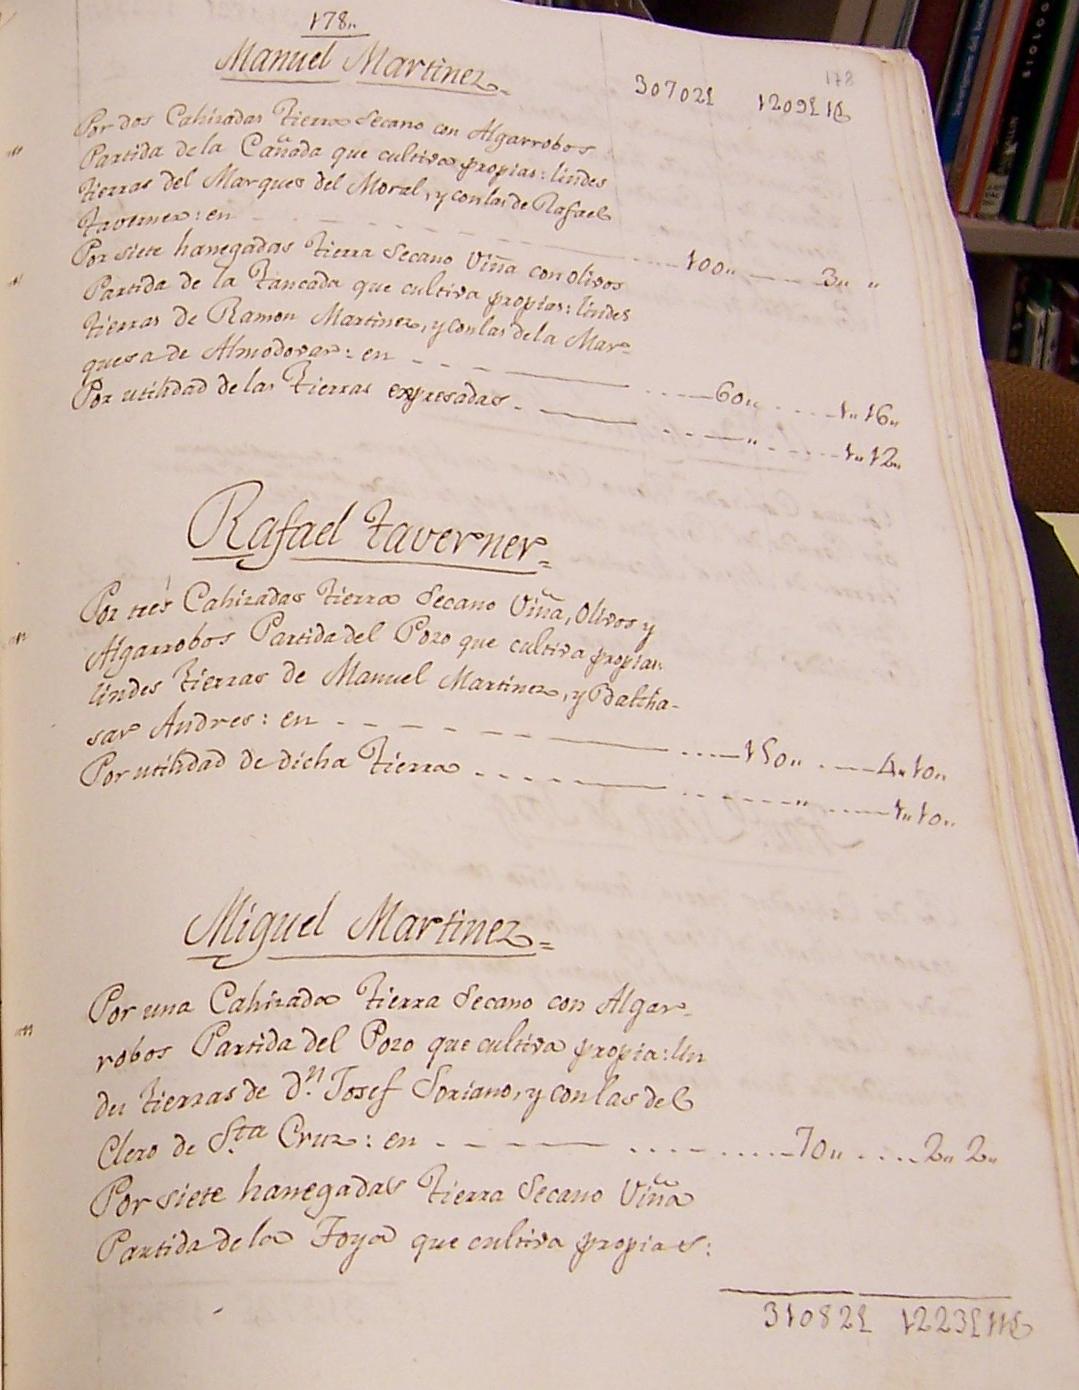 178„
178
Manuel Martinez
30702£ 1209£1
Por dos Cahizadas Tierra Secano con Algarrobos
Partida de la Cañada que cultiva propias: lindes
tierras del Marques del Moral, y con las de Rafael
Taverner: en 100„ 3„ „
Por siete hanegadas Tierra Secano Viña con olivos
Partida de la Tancada que cultiva propias: lindes
tierras de Ramon Martinez, y con las de la Mar=
quesa de Almodovar: en 60„ 1„ 16„
Por utilidad de las Tierras expresadas „ 1„ 12„
Rafael Taverner=
Por tres Cahizadas Tierra Secano Viña, Olivos y
Algarrobos Partida del Pozo que cultiva propias
lindes Tierras de Manuel Martinez, y Baltha-
sar Andres: en 150„ 4„ 10„
Por utilidad de dicha Tierra „ 1„ 10„
Miguel Martinez=
Por una Cahizada Tierra Secano con Algar=
robos Partida del Pozo que cultiva propia: lin
des tierras de Dn. Josef Soriano, y con las del
Clero de Sta Cruz: en 70„ 2„ 2„
Por siete hanegadas Tierra Secano Viña
Partida de la Foya que cultiva propias:
31082£ 1223£11